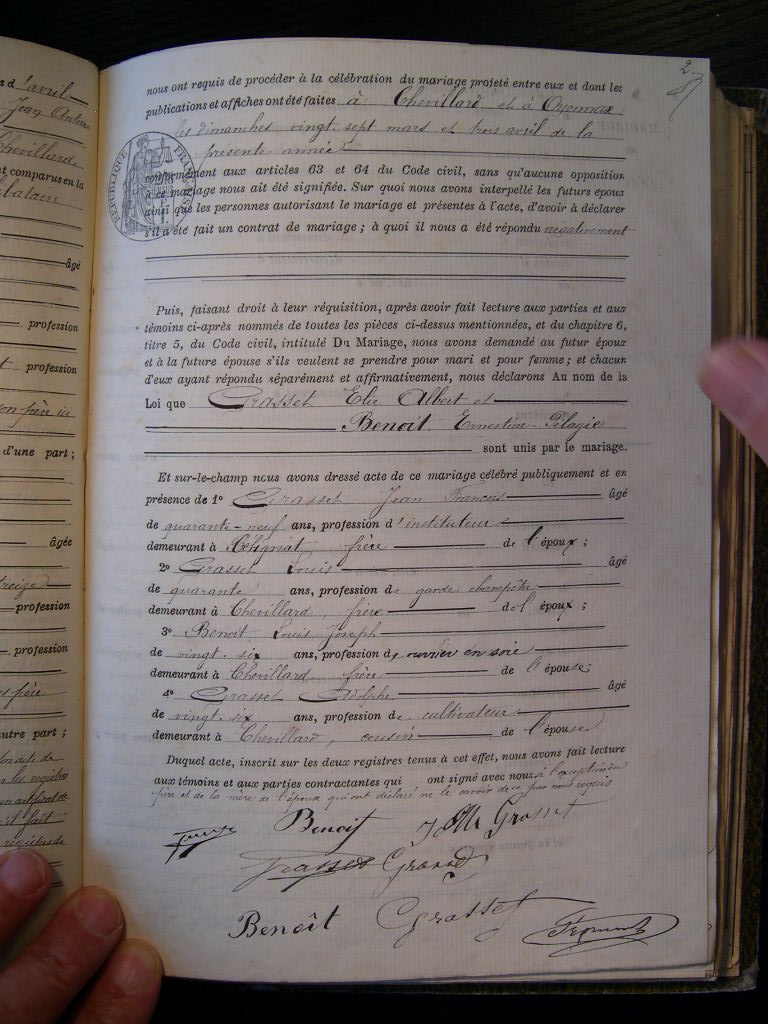 s d'avril
Jean Antoine
Chevillard
et, comparus en la
âgé
profession
profession
d'une part ;
âgée
treize
profession
profession
autre part ;
2
RÉPUBLIQUE FRANÇAISE
nous ont requis de procéder à la célébration du mariage projeté entre eux et dont les
publications et affiches ont été faites à Chevillard et à Oyonnax
les dimanches vingt-sept mars et trois avril de la
présente année
conformément aux articles 63 et 64 du Code civil, sans qu'aucune opposition
à ce mariage nous ait été signifiée. Sur quoi nous avons interpellé les futurs époux
ainsi que les personnes autorisant le mariage et présentes à l'acte, d'avoir à déclarer
s'il a été fait un contrat de mariage ; à quoi il nous a été répondu négativement
Puis, faisant droit à leur réquisition, après avoir fait lecture aux parties et aux
témoins ci-après nommés de toutes les pièces ci-dessus mentionnées, et du chapitre 6,
titre 5, du Code civil, intitulé Du Mariage, nous avons demandé au futur époux
et à la future épouse s'ils veulent se prendre pour mari et pour femme ; et chacun
d'eux ayant répondu séparément et affirmativement, nous déclarons Au nom de la
Loi que Grasset Elie Albert et
Benoit Ernestine-Pélagie
sont unis par le mariage.
Et sur-le-champ nous avons dressé acte de ce mariage célébré publiquement et en
présence de 1° Grasset Jean François âgé
de quarante-neuf ans, profession d'instituteur
demeurant à frère de l'époux ;
2° Grasset Louis âgé
de quarante ans, profession de garde champêtre
demeurant à Chevillard, frère de l'époux ;
3° Benoit Louis Joseph
de vingt-six ans, profession d'ouvrier en soie
demeurant à Chevillard frère de l'épouse ;
4° Grasset Adolphe âgé
de vingt-six ans, profession de cultivateur
demeurant à Chevillard, cousin de l'épouse
Duquel acte, inscrit sur les deux registres tenus à cet effet, nous avons fait lecture
aux témoins et aux parties contractantes qui ont signé avec nous à l'exception du
père et de la mère de l'époux qui ont déclaré ne le savoir de ce par nous requis
Benoit Grasset
Grasset Grasset
Benoît Grasset